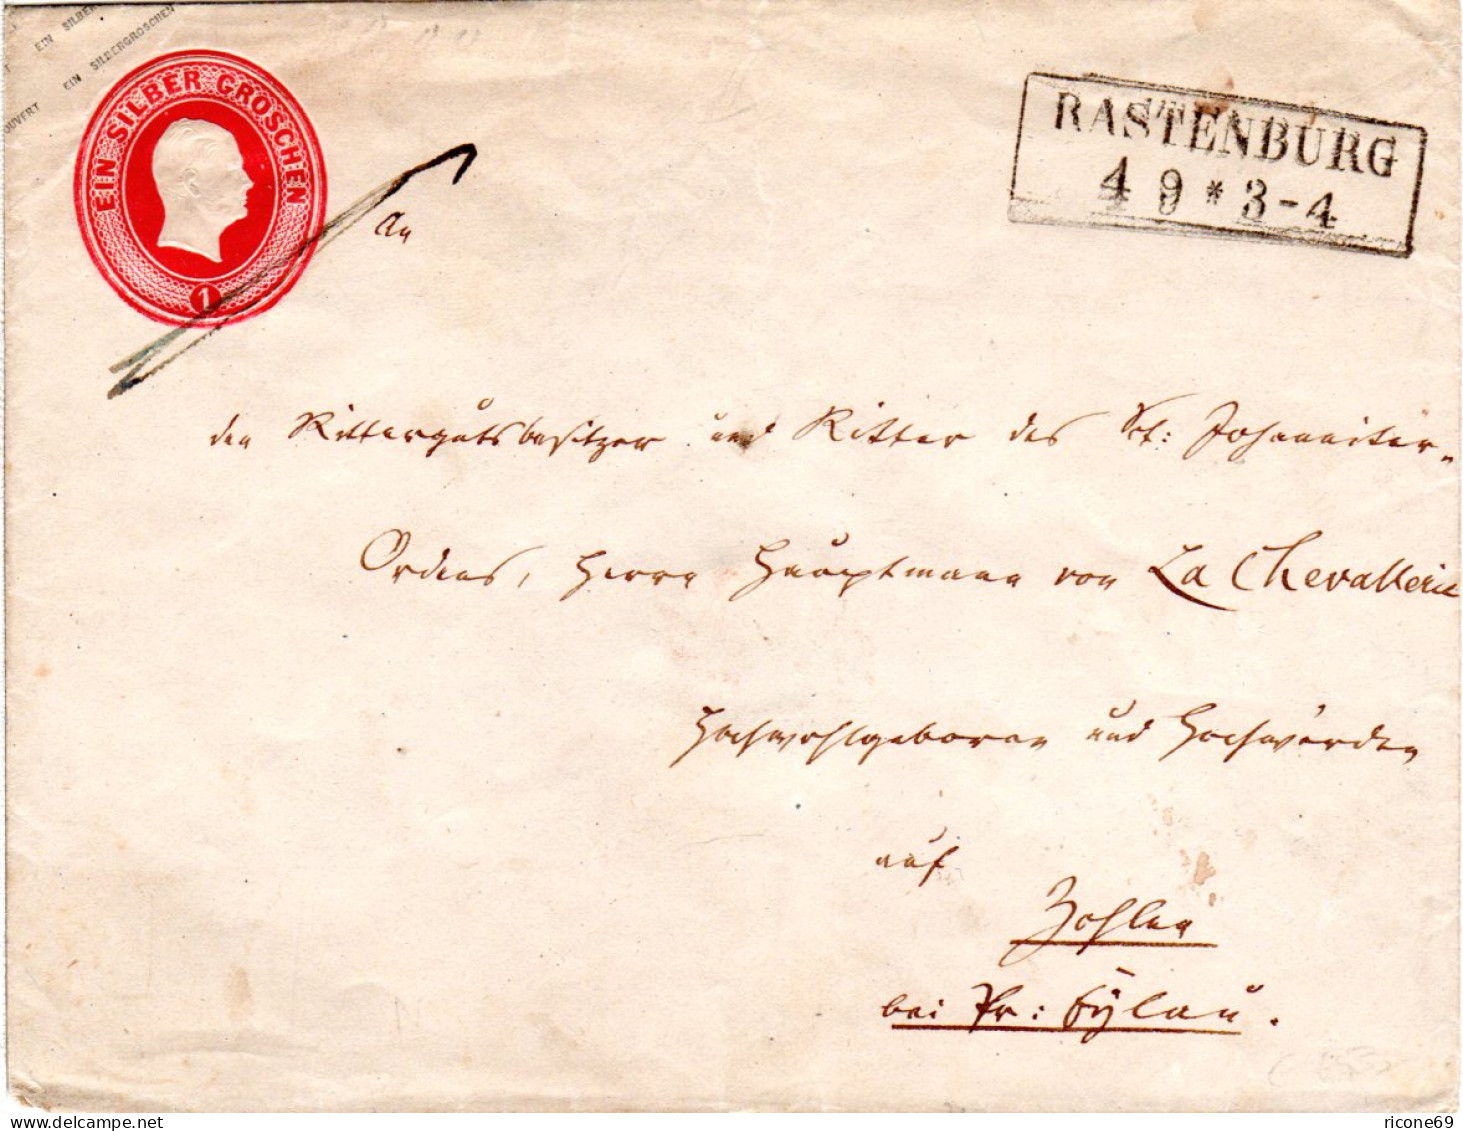 EIN SILBER
OUVERT EIN SILBERGROSCHEN
EIN SILBER GROSCHEN
1
RASTENBURG
4 9 * 3-4
An
den Rittergutsbesitzer und Ritter des Sct: Johanniter-
Ordens, Herrn Hauptmann von La Chevallerie
Hochwohlgeboren und Hochwürden
auf
Zohlen
bei Pr: Eylau.
ricone69